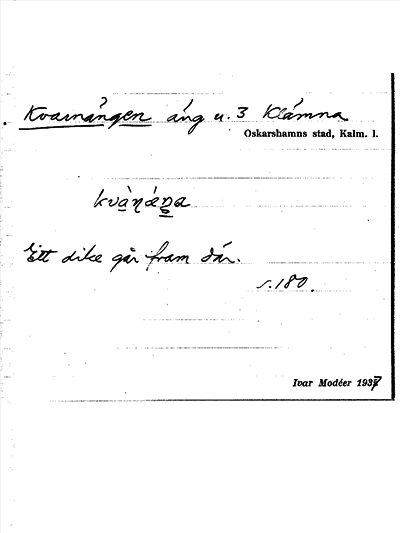 Kvarnängen äng u. 3 Klämna
Oskarshamns stad, Kalm. l.
Ett dike går fram där.
s. 180.
Ivar Modéer 1937